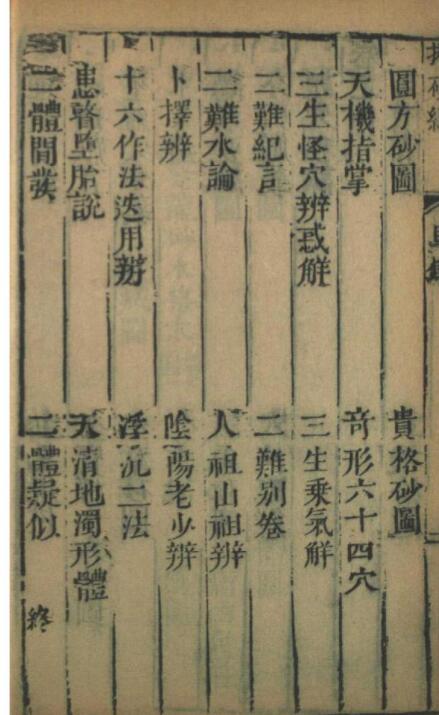 圓方砂圖 貴格砂圖
天機指掌 奇形六十四穴
三生怪穴辨惑解 三生乘氣解
二難紀言 二難別卷
二難水論 人祖山祖辨
卜擇辨 陰陽老少辨
十六作法迭用辨 浮沉二法
患啓墮胎說 天清地濁形體
二體間發 二體疑似 終